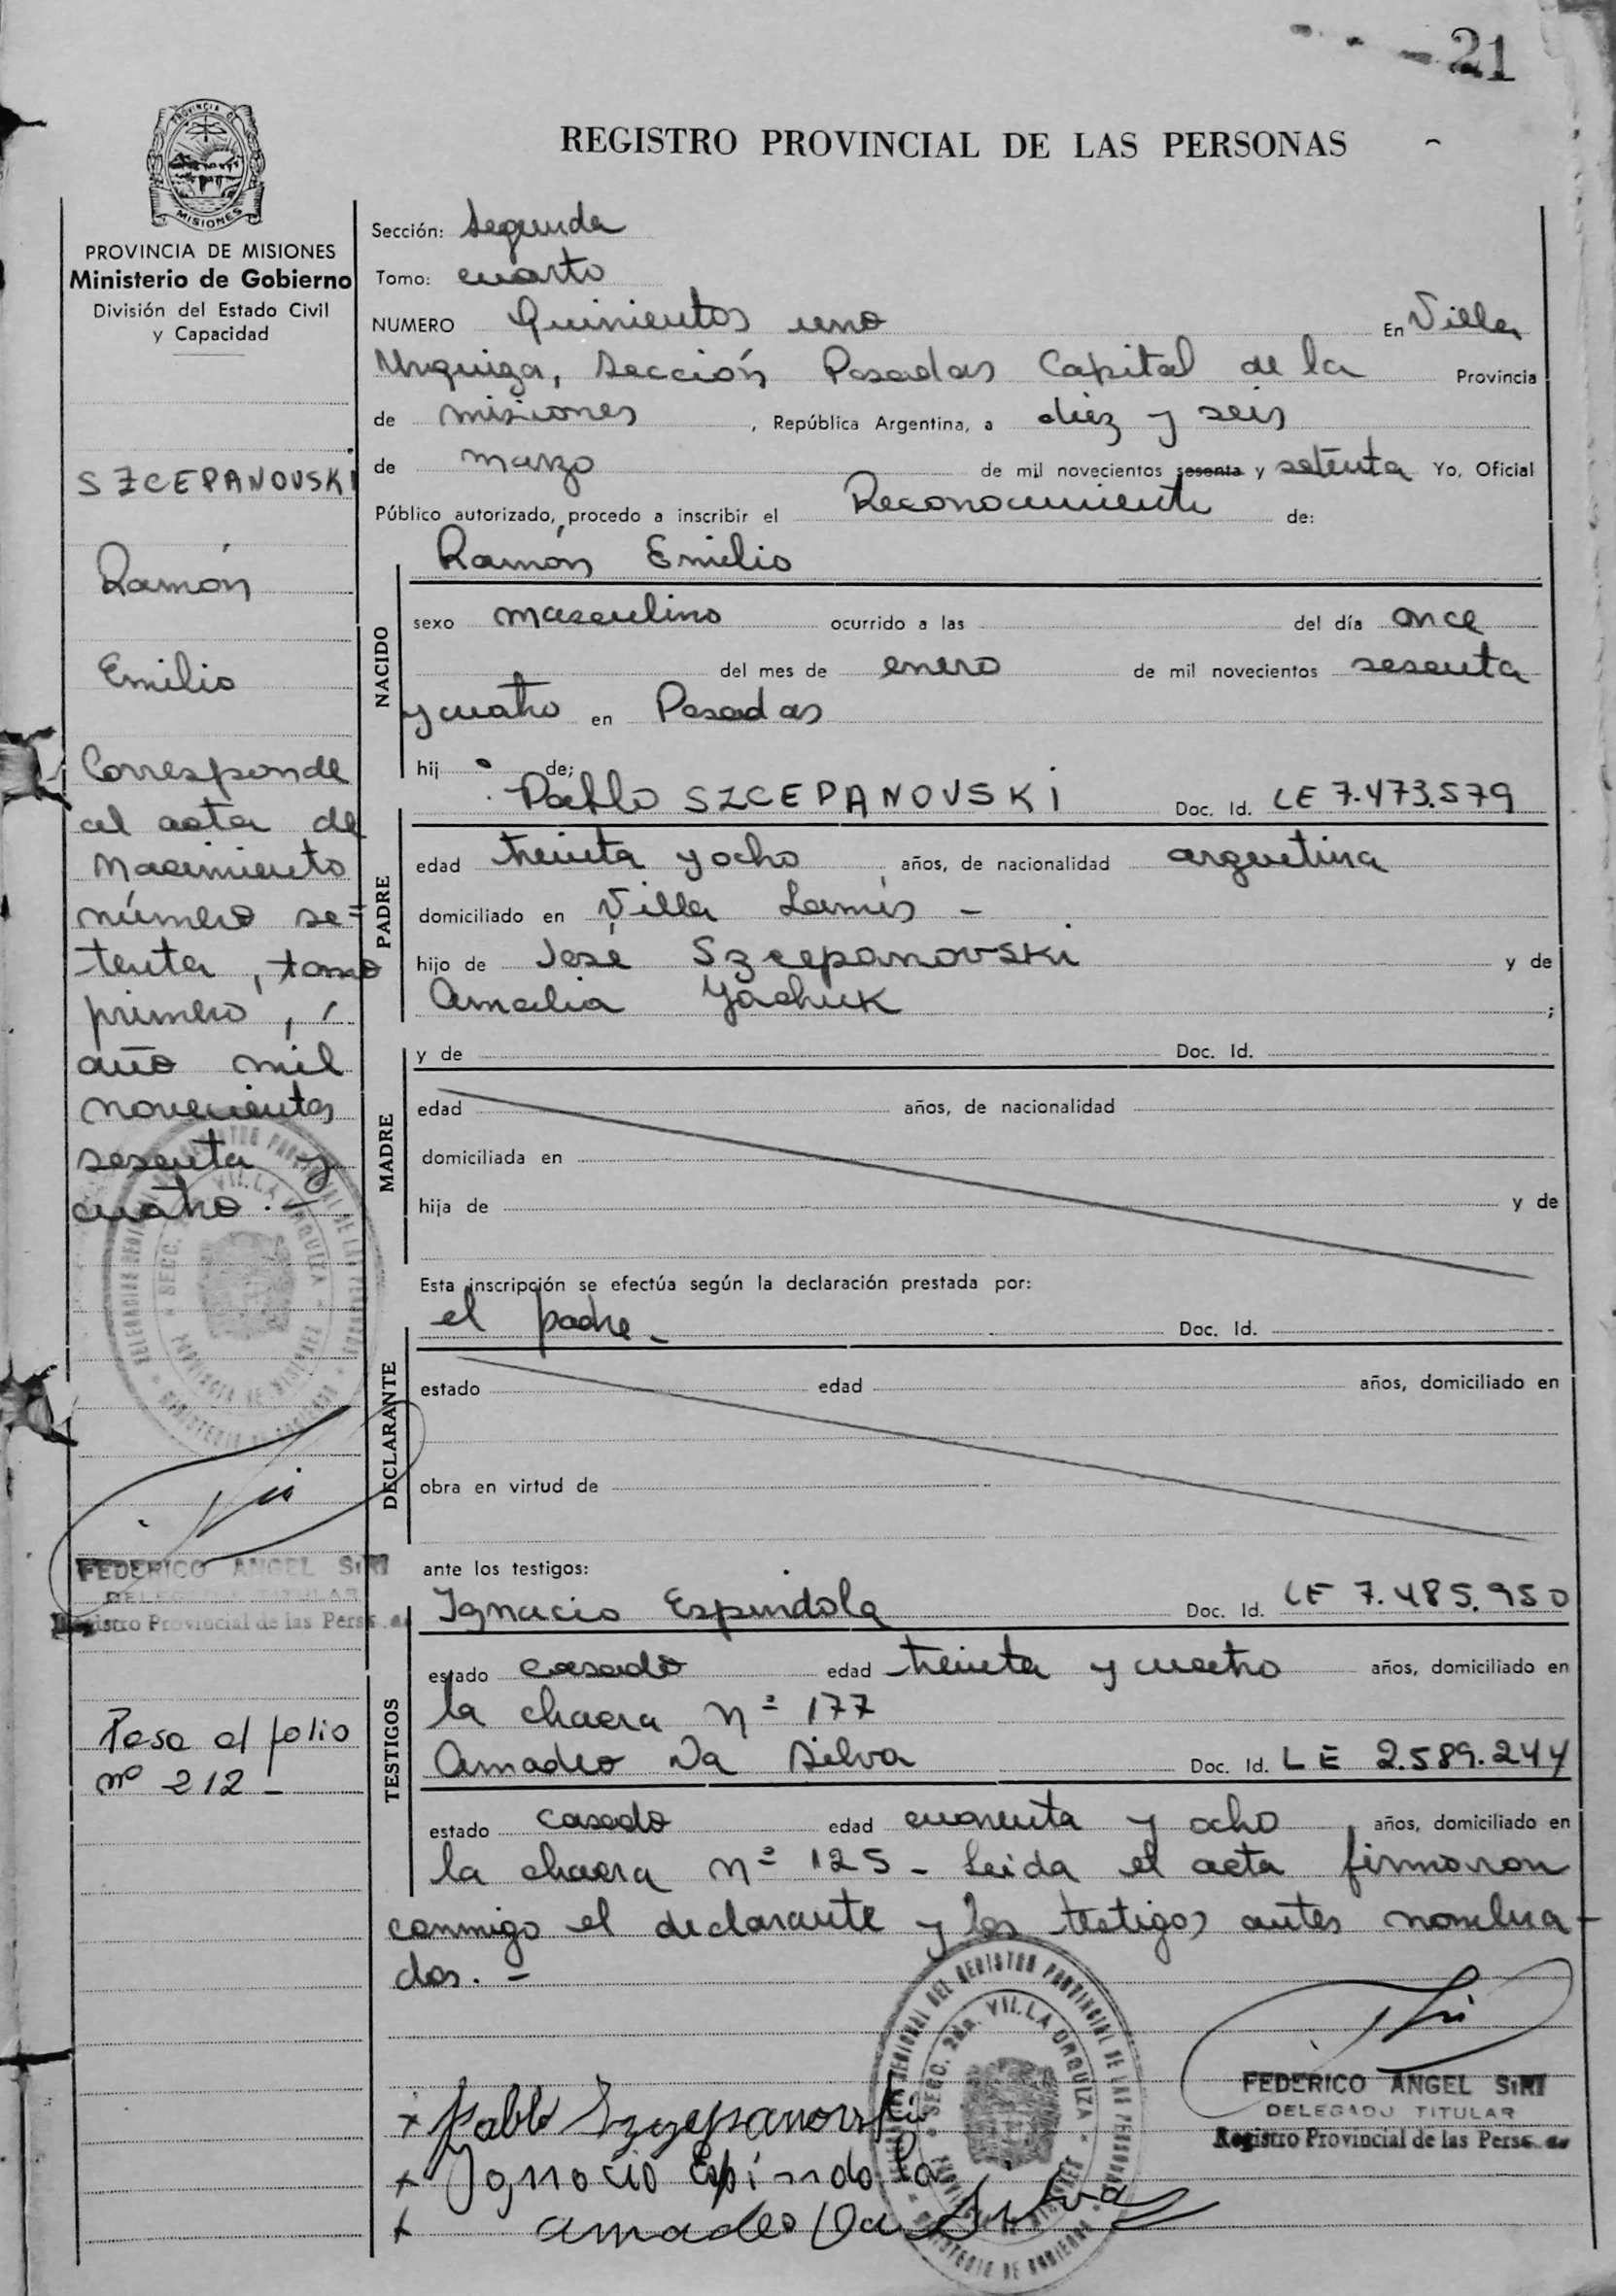 21
REGISTRO PROVINCIAL DE LAS PERSONAS
PROVINCIA DE MISIONES
PROVINCIA DE MISIONES
Ministerio de Gobierno
División del Estado Civil
y Capacidad
SZCEPANOVSKI
Ramón
Emilio
Corresponde
al acta de
Nacimiento
número se=
tenta, tomo
primero,
año mil
novecientos
sesenta y
cuatro.-
FEDERICO ANGEL SIRI
DELEGADO TITULAR
Registro Provincial de las Pers
Pasa al folio
nº 212-
Sección: Segunda
Tomo: cuarto
NUMERO Quinientos uno En Villa
Urquiza, Sección Posadas Capital de la Provincia
de misiones, República Argentina, a diez y seis
de marzo de mil novecientos sesenta y setenta Yo, Oficial
Público autorizado, procedo a inscribir el Reconocimiento de:
NACIDO
Ramón Emilio
sexo masculino ocurrido a las del día once
del mes de enero de mil novecientos sesenta
y cuatro en Posadas
hijo de;
PADRE
Pablo SZCEPANOVSKI Doc. Id. LE 7.473.579
edad treinta y ocho años, de nacionalidad argentina
domiciliado en Villa Lamis -
hijo de José Szcepanovski y de
Amalia Yachuk ;
MADRE
y de Doc. Id.
edad años, de nacionalidad
domiciliada en
hija de y de
Esta inscripción se efectúa según la declaración prestada por:
DECLARANTE
el padre- Doc. Id.
estado edad años, domiciliado en
obra en virtud de
ante los testigos:
TESTIGOS
Ignacio Espindola Doc. Id. LE 7.485.950
estado casado edad treinta y cuatro años, domiciliado en
la chacra nº 177
Amadeo Da Silva Doc. Id. LE 2.589.244
estado casado edad cuarenta y ocho años, domiciliado en
la chacra nº 125 - Leida el acta firmaron
conmigo el declarante y los testigos antes nombra-
dos.-
DELEGACION REGIONAL DEL REGISTRO PROVINCIAL DE LAS PERSONAS
SECC. 2da. VILLA URQUIZA
PROVINCIA DE MISIONES
MINISTERIO DE GOBIERNO
FEDERICO ANGEL SIRI
DELEGADO TITULAR
Registro Provincial de las Pers
x Pablo Szczepanovski
x Ignacio Espindola
x amadeo Da Silva